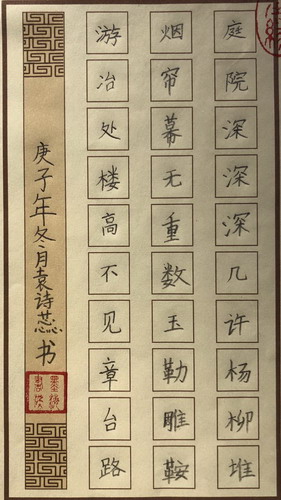 庭院深深深几许杨柳堆
烟帘幕无重数玉勒雕鞍
游冶处楼高不见章台路
庚子年冬月袁诗蕊书